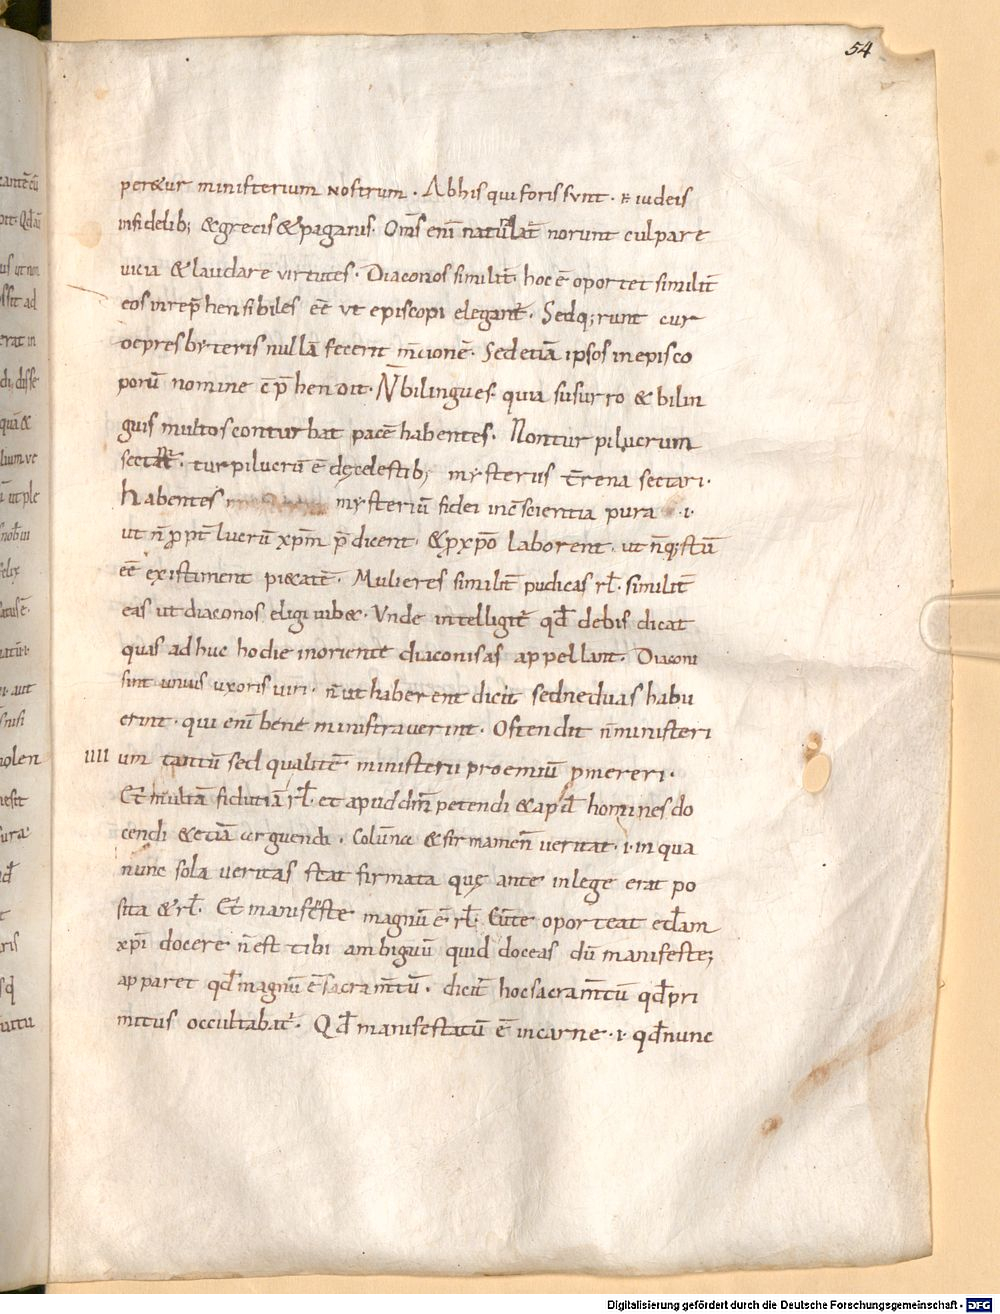 54
per&ur ministerium nostrum · Abhis qui foris sunt · iudeis
infidelib; &grecis&paganis · Om̄s enī naturalit̄ norunt culpare
uicia &laudare virtutes · Diaconos similit̄ hoc ē oportet similit̄
eos inrep̄hensibiles eē ut episcopi elegant̄ · Sedq;runt cur
depresbyteris nullā fecerit m̄cionē · Sed etiā ipsos inepisco
porū nomine c̄p̄hendit · N̄ bilingues · quia susurro & bilin
guis multos conturbat pacē habentes · Non turpilucrum
sectant̄ · turpilucrū ē decelestib; mysteriis t̄rena sectari ·
habentes mysteriū fidei inc̄scientia pura · i ·
ut n̄ ꝓpt̄ lucrū xp̄m p̄dicent · &ꝓxp̄o laborent · ut n̄q;stū
eē existiment pi&atē · Mulieres similit̄ pudicas rł · similit̄
eas ut diaconos eligi iub& · Unde intelligit̄ qđ debis dicat
quas adhuc hodie inoriente diaconisas appellant · Diaconi
sint unius uxoris uiri · n̄ut haberent dicit sedneduas habu
erint · qui enī bene ministraverint · Ostendit n̄ministeri
IIII um tantū sed qualitē ministerii proemiū ꝓmereri ·
Et multā fiduciā rł · et apud dm̄ petendi &apud homines do
cendi &etiā arguendi · Colūna &firmamen̄ veritat · i · in qua
nunc sola veritas stat firmata quę ante inlege erat po
sita &rł · Et manifeste magnū ē rł · Cūte oporteat eccłam
xp̄i docere n̄ est tibi ambiguū quid doceas dū manifeste;
apparet qđ magnū ē sacram̄tū · dicit̄ hoc sacram̄tū qđ pri
mitus occultabat̄ · Qđ manifestatū ē incarne · i · qđ nunc
Digitalisierung gefördert durch die Deutsche Forschungsgemeinschaft · DFG